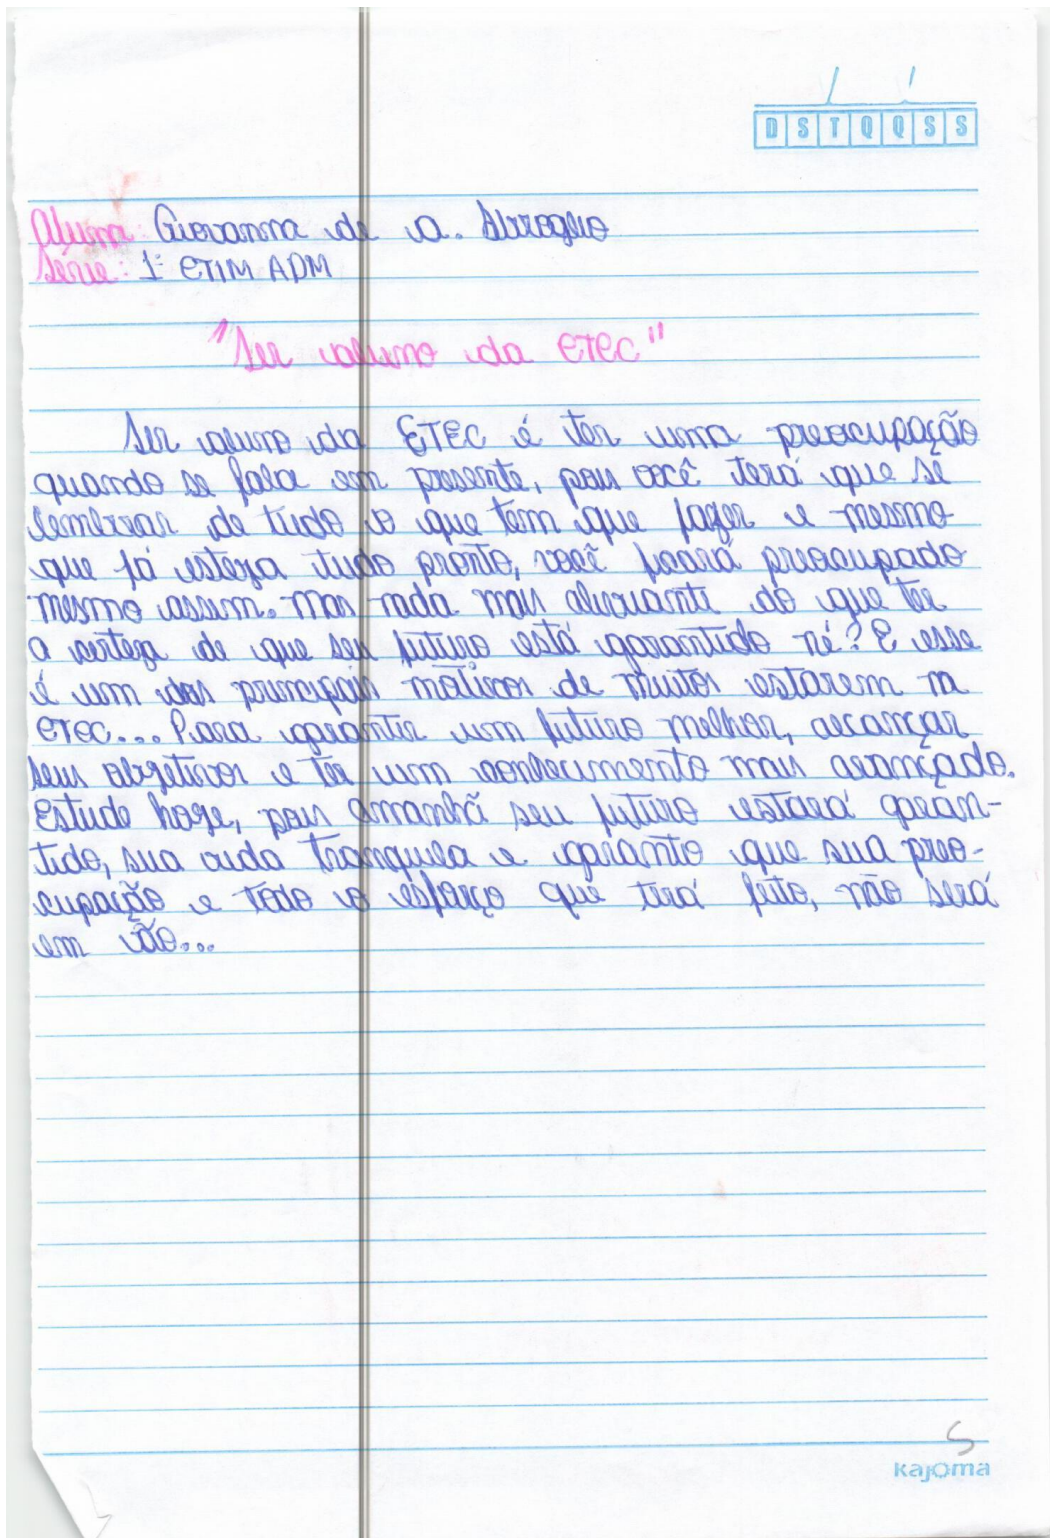 D S T Q Q S S
Aluna: Giovanna de A.
Série: 1º ETIM ADM
"Ser aluno da ETEC"
Ser aluno da ETEC é ter uma preocupação
quando se fala em presente, pois você terá que se
lembrar de tudo o que tem que fazer e mesmo
que já esteja tudo pronto, você ficará preocupado
mesmo assim. Mas nada mais aliviante do que ter
a certeza de que seu futuro está garantido né? E esse
é um dos principais motivos de muitos estarem na
ETEC... Para garantir um futuro melhor, alcançar
seus objetivos e ter um conhecimento mais avançado.
Estude hoje, pois amanhã seu futuro estará garan-
tido, sua vida tranquila e garanto que sua preo-
cupação e todo o esforço que terá feito, não será
em vão...
S
kajoma